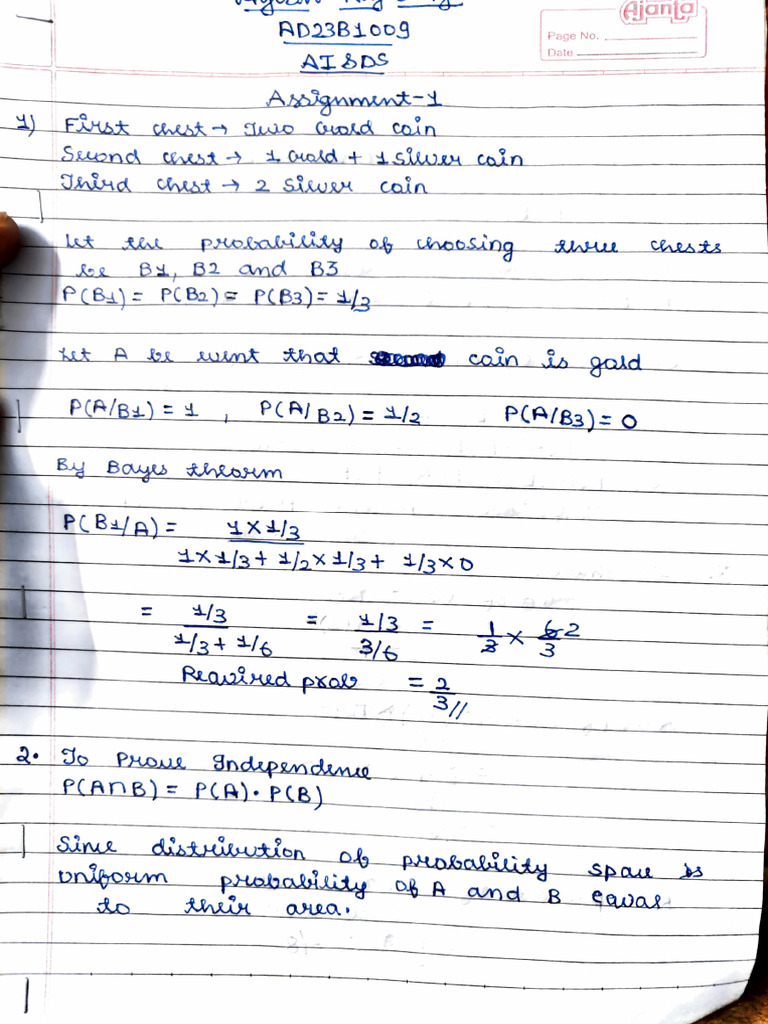 Ajanta
Page No.
Date
AD23B1009
AI&DS
Assignment-1
1) First chest → Two Gold coin
Second chest → 1 Gold + 1 Silver coin
Third chest → 2 Silver coin
Let the probability of choosing three chests
be B1, B2 and B3
P(B1) = P(B2) = P(B3) = 1/3
Let A be event that coin is gold
P(A/B1) = 1 , P(A/B2) = 1/2 P(A/B3) = 0
By Bayes theorm
P(B1/A) = 1 × 1/3
1 × 1/3 + 1/2 × 1/3 + 1/3 × 0
= 1/3 = 1/3 = 1/3 × 6 2/3
1/3 + 1/6 3/6
Required prob = 2/3 //
2. To Prove Independence
P(A∩B) = P(A) • P(B)
Since distribution of probability space is
uniform probability of A and B equas
to their area.